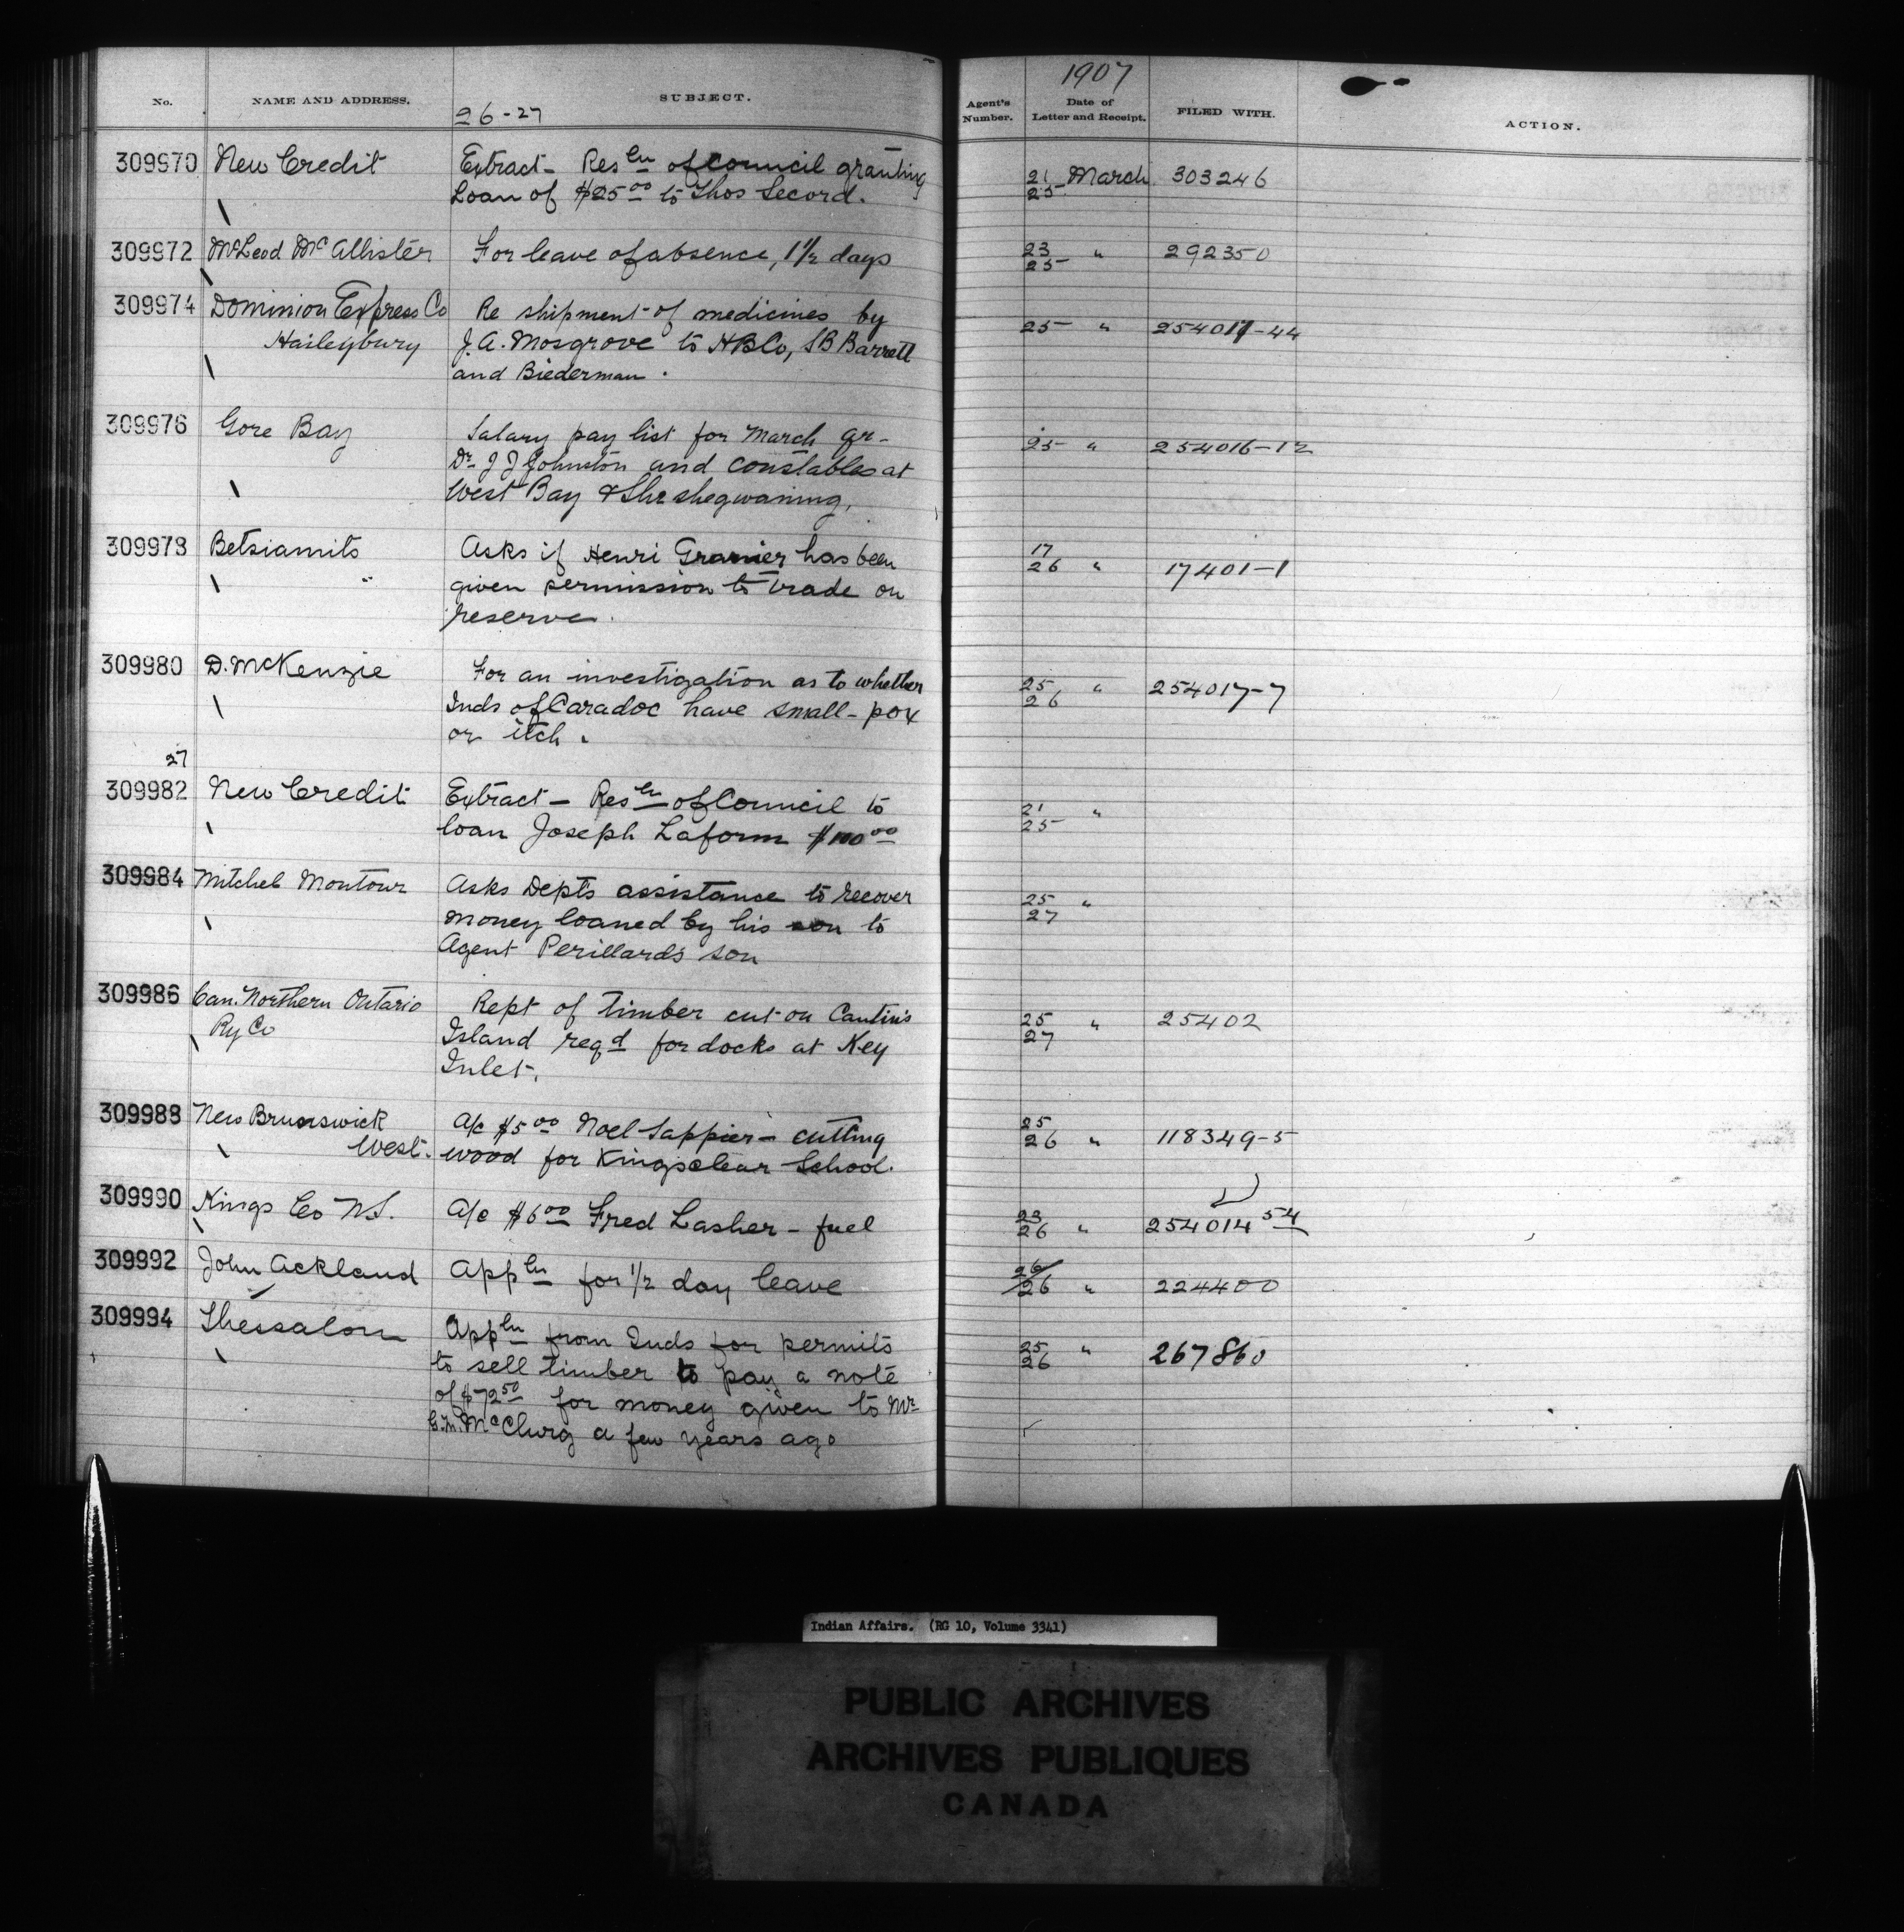 1907
No. NAME AND ADDRESS. SUBJECT. Agent's Number. Date of Letter and Receipt. FILED WITH. ACTION.
26-27
309970 New Credit Extract - Resln of Council granting 21 March 303246
Loan of $25.00 to Thos Secord. 25
309972 McLeod McAllister For leave of absence, 1 1/2 days 23 " 292350
25
309974 Dominion Express Co Re shipment of medicines by
Haileybury J.A. Mosgrove to HBCo, SB Barrett 25 " 254017-44
and Biederman.
309976 Gore Bay Salary pay list for March qr- 25 " 254016-12
Dr J J Johnston and constables at
West Bay & Sheshegwaning,
309978 Betsiamits Asks if Henri has been 17
" given permission to trade on 26 " 17401-1
reserve.
309980 D. McKenzie For an investigation as to whether 25 " 254017-7
Inds of Caradoc have small-pox 26
or itch.
27
309982 New Credit Extract - Resln of Council to 21 "
loan Joseph Laform $100.00 25
309984 Mitchel Montour Asks Depts assistance to recover 25 "
money loaned by his son to 27
Agent Perillard's son
309986 Can. Northern Ontario Rept of timber cut on Cantin's 25 " 25402
Ry Co Island reqd for docks at Key 27
Inlet.
309988 New Brunswick A/c $5.00 Noel Sappier - cutting 25
West. wood for Kingsclear School. 26 " 118349-5
309990 Kings Co N.S. A/c $6.00 Fred Lasher - fuel 23
26 " 254014 54
309992 John Ackland Appln for 1/2 day leave 26
26 " 224400
309994 Thessalon Appln from Inds for permits 25 " 267860
to sell timber to pay a note 26
of $72.50 for money given to Mr
McClurg a few years ago
Indian Affairs. (RG 10, Volume 3341)
PUBLIC ARCHIVES
ARCHIVES PUBLIQUES
CANADA